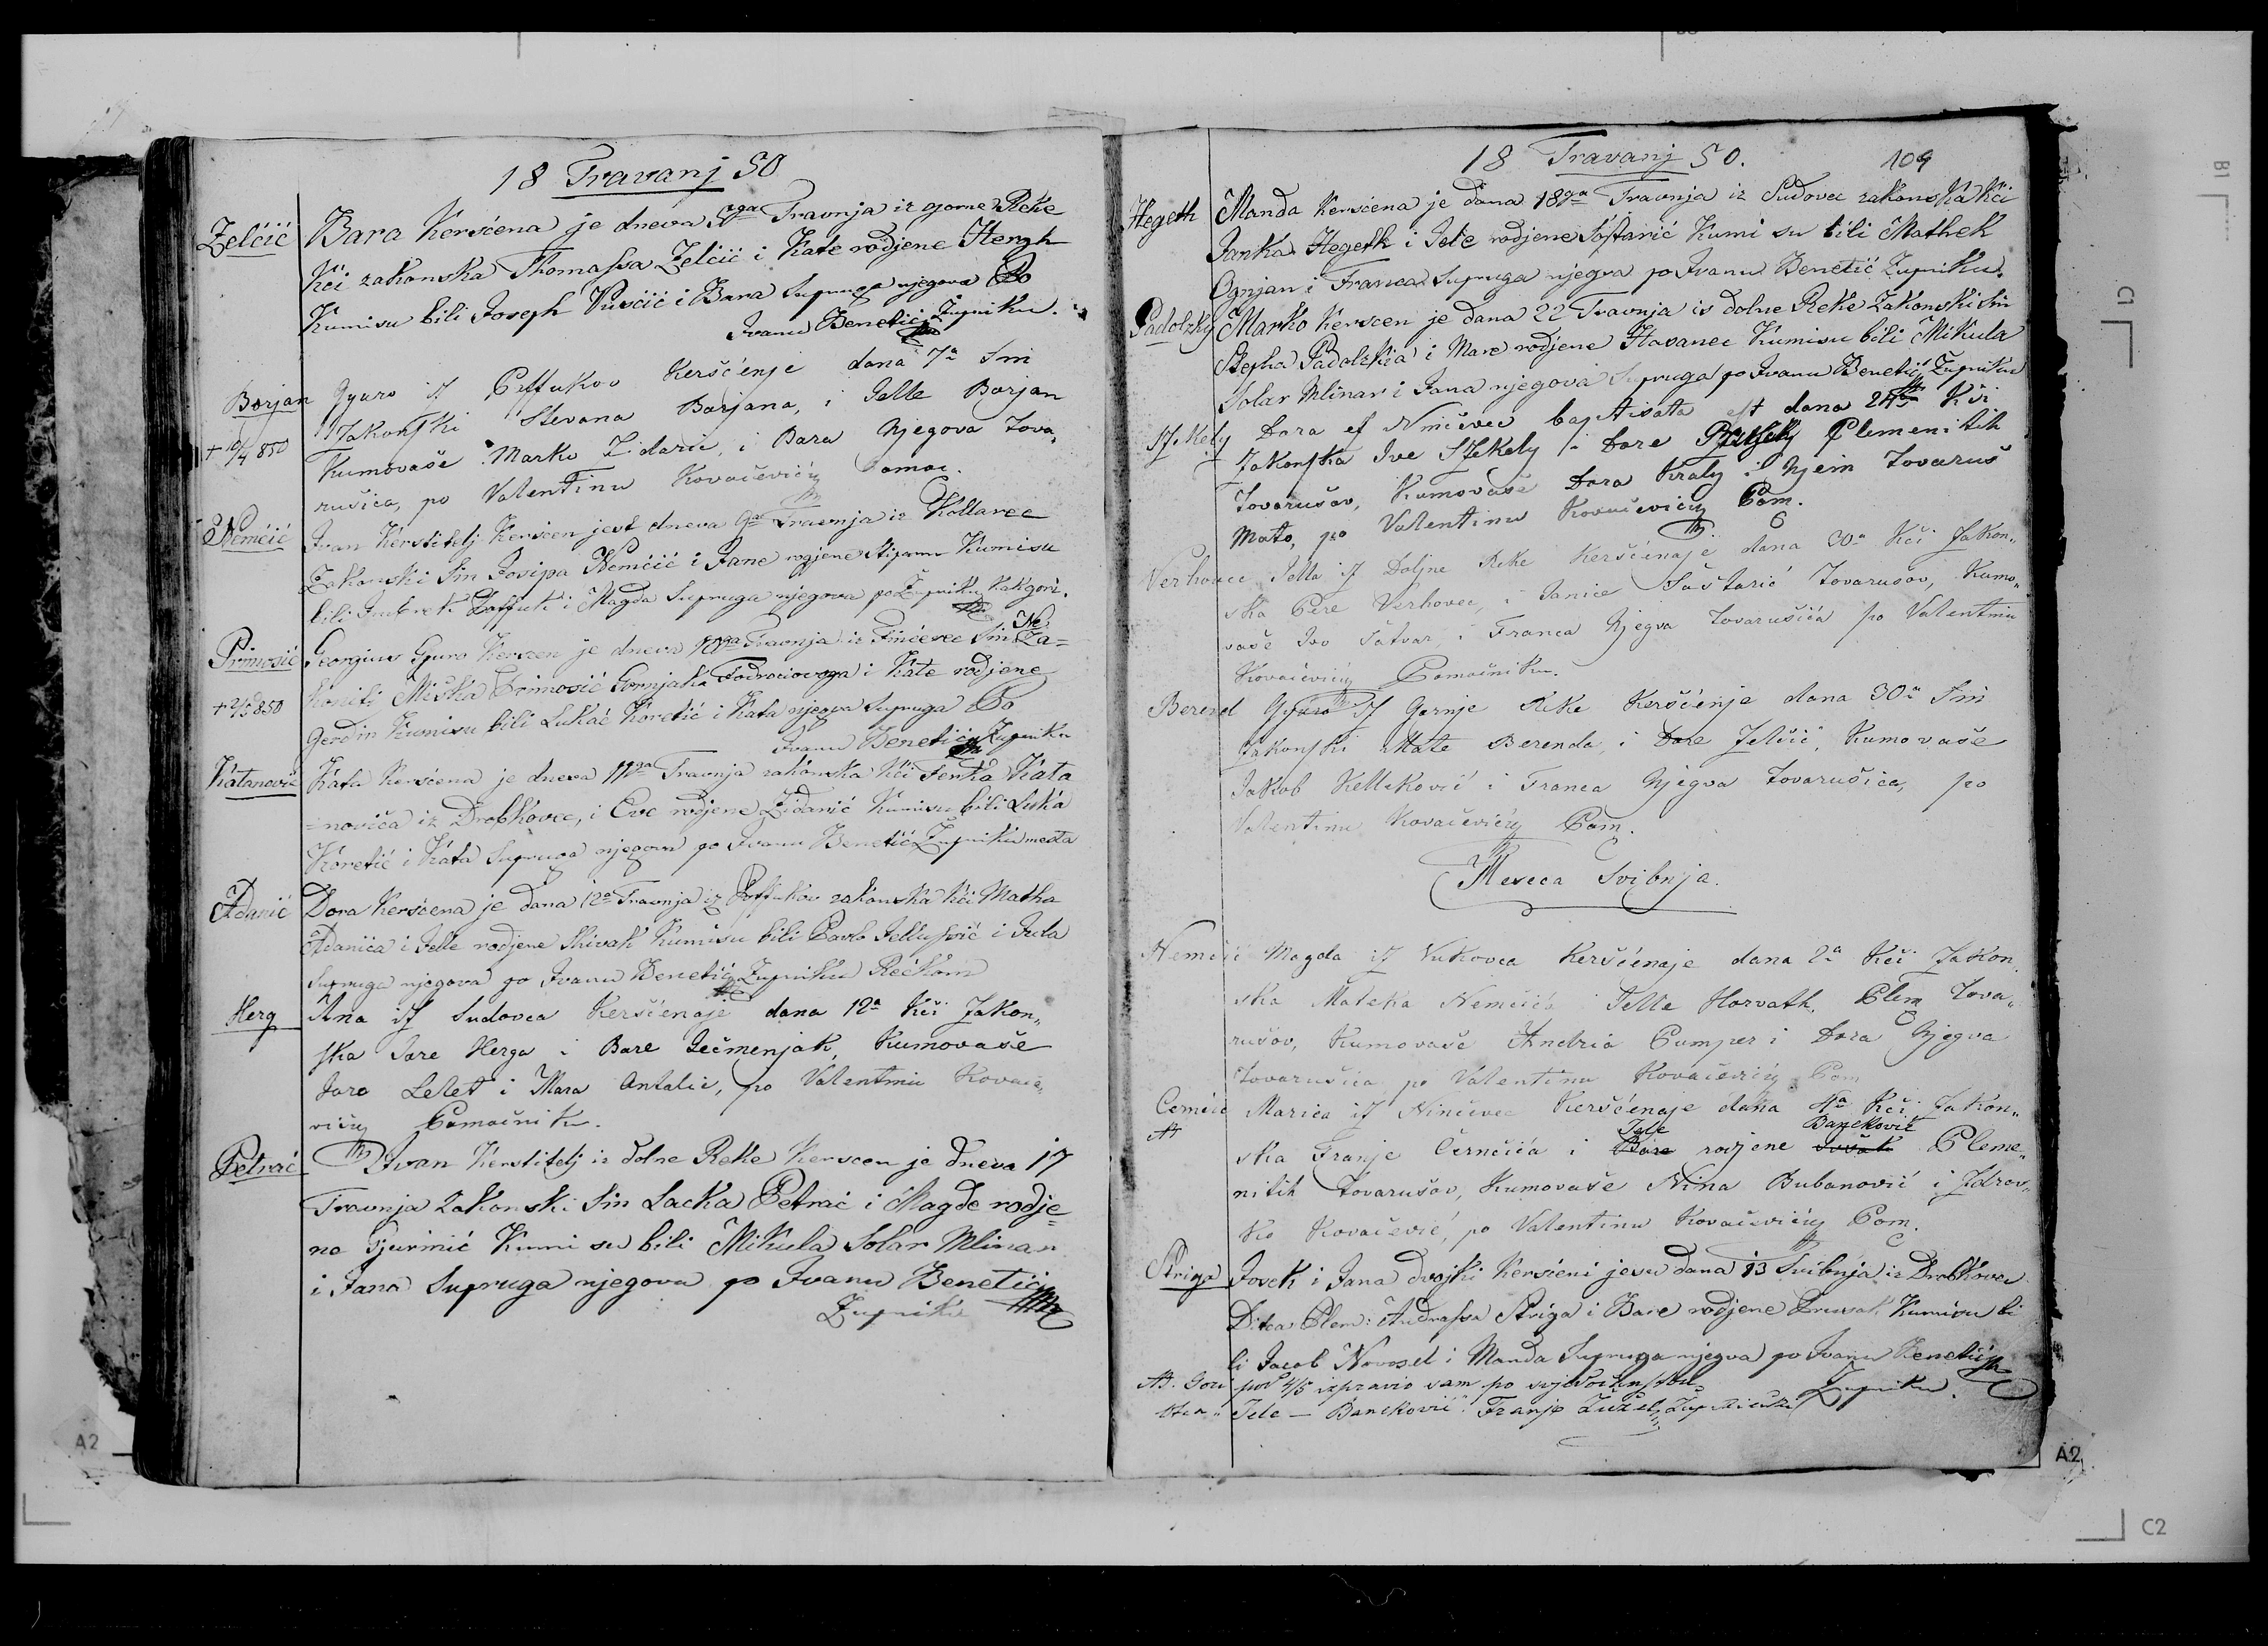 18 Travanj 50
Zelčić Bara Kersćena je dneva Travnja iz gorne Reke
Kći zakonska Thomassa Zelčić i Kate rodjene Hergh
Kumisu bili Joseph Vusčić i Bara Supruga njegova Po
Ivanu Benetić Župniku.
Borjan Gyuro iz Keršćenje dana 7a Sin
Zakonski Stevana Borjana, i Jelle Borjan
+ 10/4 850 Kumovaše Marko Zidarić, i Bara Njegova Tova„
rušica, po Valentinu Kovačeviću Pomoc.
Nemčić Ivan Kerstitelj Keršćen jest dneva 9ga Travnja iz Kollarec
Zakonski Sin Josipa Nemčić i Jane rogjene Kumisu
bili i Magda Supruga njegova po Župniku kakgori.
Primosić Georgius Gjuro Kerscen je dneva 10ga Travnja iz Sin Za=
koniti Miška Primosić Gornjaka i Kate rodjene
+ 2/5 850 Gerdin Kumisu bili Lukač Koretić i Kata njegva Supruga Po
Ivanu Benetić Župniku
Katanović Kata Kersćena je dneva 11ga Travnja zakonska Kći Ferka Kata
=novića iz Drobkovec, i Eve rodjene Zidarić Kumisu bili Luka
Koretić i Kata Supruga njegova po Ivanu Benetić Župniku mesta
Adanić Dora Kersćena je dana 12a Travnja iz zakonska Kći Matha
Adanića i Jelle rodjene Skivak Kumisu bili Pavo Jellussić i Jula
Supruga njegova po Ivanu Benetić Župniku Rečkom
Herg Ana iz Sudovca Keršćenaje dana 12a Kći Zakon„
ska Jare Herga i Bare Ječmenjak, Kumovaše
Jaro Lelet i Mara Antalić, po Valentinu Kovače„
viću Pomočniku.
Petrać Ivan Kerstitelj iz dolne Reke Kerscen je dneva 17
Travnja Zakonski Sin Lacka Petrać i Magde rodje=
ne Gjurinić Kumi su bili Mikula Solar Mlinar
i Jana Supruga njegova po Ivanu Benetić
Župniku
18 Travanj 50. 109
Hegeth Manda Kersćena je dana 18ga Travnja iz Sudovec zakonska Kći
Janka Hegeth i Jele rodjene Soštarić Kumi su bili Mathek
Ognjan i Franca Supruga njegva po Ivanu Benetić Župniku.
Padolzky Marko Kerscen je dana 22 Travnja is dolne Reke Zakonski Sin
Stepha Padolskia i Mare rodjene Havanec Kumisu bili Mikula
Solar Mlinar i Jana njegova Supruga po Ivanu Benetić Župniku
Szekely Dora ex Ninčevec baptisata est dana 24 Kći
Zakonska Ive Szekely i Dore Plemenitih
Tovarušov, Kumovaše Dora Kraly i Njein Tovaruš
Mato, po Valentinu Kovačeviću Pom.
Verhovec Jella iz Doljne Reke Keršćenaje dana 30a Kći Zakon„
ska Pere Verhovec, i Janice Šoštarić Tovarušov, Kumo„
vaše Ivo Šatvar i Franca Njegva Tovarušića po Valentinu
Kovačeviću Pomočniku.
Berend Gyuro iz Gornje Reke Keršćenje dana 30a Sin
Zakonski Mate Berenda, i Dore Jelčić, Kumovaše
Jakob Kelleković i Franca Njegva Tovarušica, po
Valentinu Kovačeviću Pom.
Meseca Svibnja.
Nemčić Magda iz Vukovca Keršćenaje dana 2a Kći Zakon„
ska Mateka Nemčića i Jelle Horvath, Plem Tova„
rušov, Kumovaše Andria Pumper i Dora Njegva
Tovarušica po Valentinu Kovačeviću Pom
Marica iz Ninčevec Keršćenaje dana 4a Kći Zakon„
Jele Bancković
ska Franje Černčića i Bare rodjene Pleme„
nitih Tovarušov, Kumovaše Nina Bubanović i Zdrav„
ko Kovačević, po Valentinu Kovačeviću Pom.
Striga Josek i Jana dvojki Kersćeni jesu dana 13 Svibnja iz Drobkovec
Ditca Plem: Andrassa Striga i Bare rodjene Kumisu bi
li Jacob Novosel i Manda Supruga njegva po Ivanu Benetić
Župniku.
pod 4/5 izpravio sam po svjedočanstvu
Jele — Bancković. Franjo Žužel, Župnik